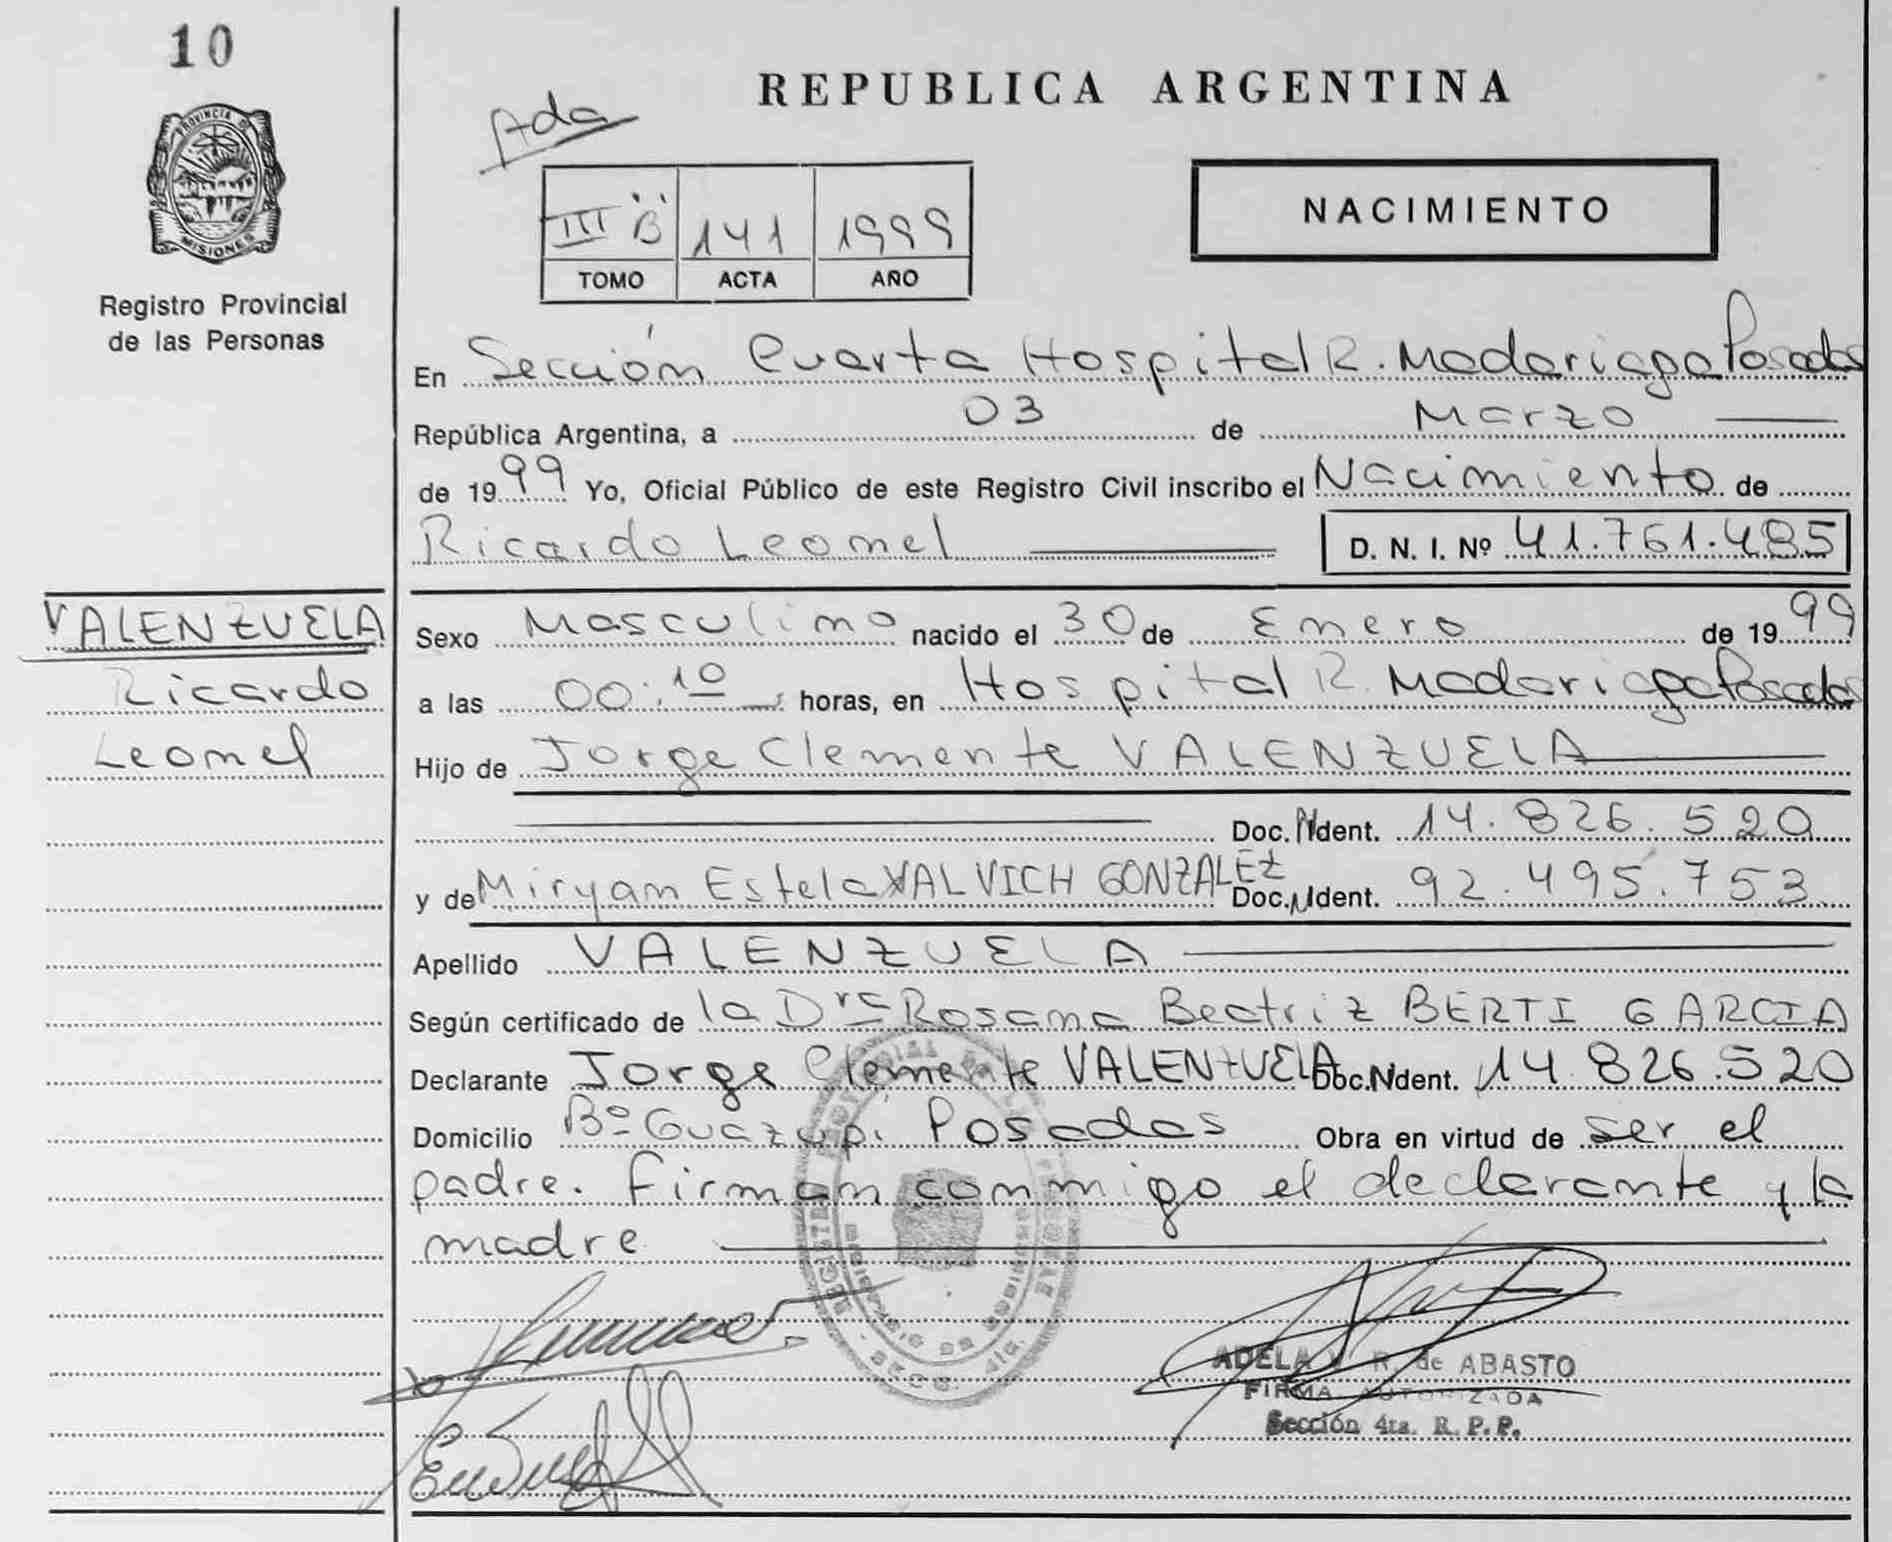 10
PROVINCIA DE
MISIONES
Registro Provincial
de las Personas
REPUBLICA ARGENTINA
Ada
III "B" 141 1999
TOMO ACTA AÑO
NACIMIENTO
En Sección Cuarta Hospital R. Madariaga Posadas
República Argentina, a 03 de Marzo
de 1999 Yo, Oficial Público de este Registro Civil inscribo el Nacimiento de
Ricardo Leonel D. N. I. Nº 41.761.485
VALENZUELA
Ricardo
Leonel
Sexo Masculino nacido el 30 de Enero de 1999
a las 00:10 horas, en Hospital R. Madariaga Posadas
Hijo de Jorge Clemente VALENZUELA
Doc. Ident. 14.826.520
y de Miryam Estela VALVICH GONZALEZ Doc. Ident. 92.495.753
Apellido VALENZUELA
Según certificado de la Dra Rosana Beatriz BERTI GARCIA
Declarante Jorge Clemente VALENZUELA Doc. Ident. 14.826.520
Domicilio Bº Guazupi Posadas Obra en virtud de ser el
padre. Firman conmigo el declarante y la
madre
ADELA R. de ABASTO
FIRMA AUTORIZADA
Sección 4ta. R. P. P.